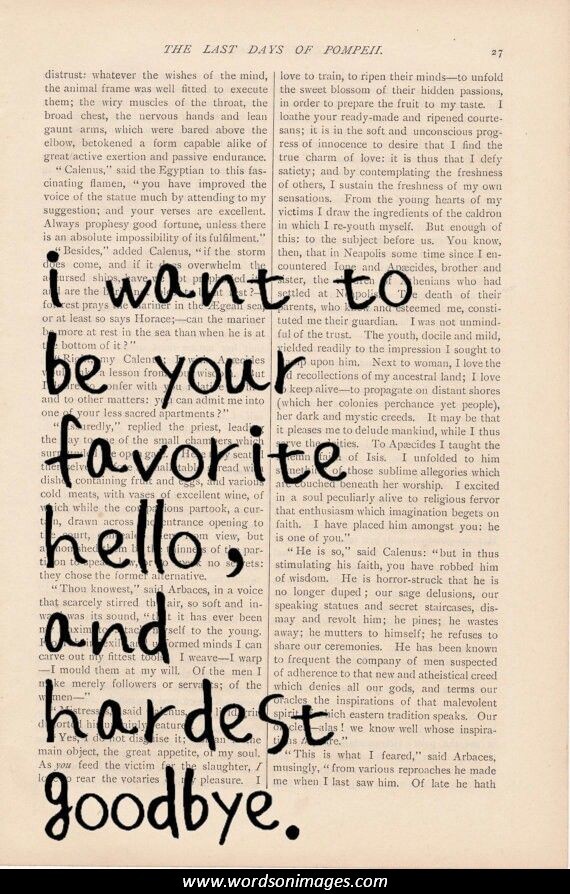 THE LAST DAYS OF POMPEII.
27
distrust: whatever the wishes of the mind,
the animal frame was well fitted to execute
them; the wiry muscles of the throat, the
broad chest, the nervous hands and lean
gaunt arms, which were bared above the
elbow, betokened a form capable alike of
great active exertion and passive endurance.
“Calenus,” said the Egyptian to this fas-
cinating flamen, “you have improved the
voice of the statue much by attending to my
suggestion; and your verses are excellent.
Always prophesy good fortune, unless there
is an absolute impossibility of its fulfilment.”
“Besides,” added Calenus, “if the storm
does come, and if it does overwhelm the
prays the mariner in the Ægean sea,
or at least so says Horace;—can the mariner
be more at rest in the sea than when he is at
the bottom of it?”
my Calenus
a lesson from
confer with
and to other matters: you can admit me into
one of your less sacred apartments?”
replied the priest, leading
the way to one of the small
containing fruit and eggs, and various
cold meats, with vessels of excellent wine, of
which while the companions partook, a cur-
tain, drawn across the entrance opening to
from view, but
they chose the former alternative.
“Thou knowest,” said Arbaces, in a voice
that scarcely stirred the air, so soft and in-
was its sound, “that it has ever been
my maxim to attach myself to the young.
minds I can
carve out my fittest tools. I weave—I warp
—I mould them at my will. Of the men I
make merely followers or servants; of the
women—”
said
Yes, I do not disguise it;
main object, the great appetite, of my soul.
As you feed the victim for the slaughter, I
love to rear the votaries of my pleasure. I
love to train, to ripen their minds—to unfold
the sweet blossom of their hidden passions,
in order to prepare the fruit to my taste. I
loathe your ready-made and ripened courte-
sans; it is in the soft and unconscious prog-
ress of innocence to desire that I find the
true charm of love: it is thus that I defy
satiety; and by contemplating the freshness
of others, I sustain the freshness of my own
sensations. From the young hearts of my
victims I draw the ingredients of the caldron
in which I re-youth myself. But enough of
this: to the subject before us. You know,
then, that in Neapolis some time since I en-
countered Ione and Apæcides, brother and
sister, the Athenians who had
settled at Neapolis. The death of their
parents, who knew and esteemed me, consti-
tuted me their guardian. I was not unmind-
ful of the trust. The youth, docile and mild,
yielded readily to the impression I sought to
stamp upon him. Next to woman, I love the
old recollections of my ancestral land; I love
to keep alive—to propagate on distant shores
(which her colonies perchance yet people),
her dark and mystic creeds. It may be that
it pleases me to delude mankind, while I thus
serve the deities. To Apæcides I taught the
of Isis. I unfolded to him
those sublime allegories which
are couched beneath her worship. I excited
in a soul peculiarly alive to religious fervor
that enthusiasm which imagination begets on
faith. I have placed him amongst you: he
is one of you.”
“He is so,” said Calenus: “but in thus
stimulating his faith, you have robbed him
of wisdom. He is horror-struck that he is
no longer duped; our sage delusions, our
speaking statues and secret staircases, dis-
may and revolt him; he pines; he wastes
away; he mutters to himself; he refuses to
share our ceremonies. He has been known
to frequent the company of men suspected
of adherence to that new and atheistical creed
which denies all our gods, and terms our
oracles the inspirations of that malevolent
spirit of which eastern tradition speaks. Our
alas! we know well whose inspira-
“This is what I feared,” said Arbaces,
musingly, “from various reproaches he made
me when I last saw him. Of late he hath
i want to
be your
favorite
hello,
and
hardest
goodbye.
www.wordsonimages.com